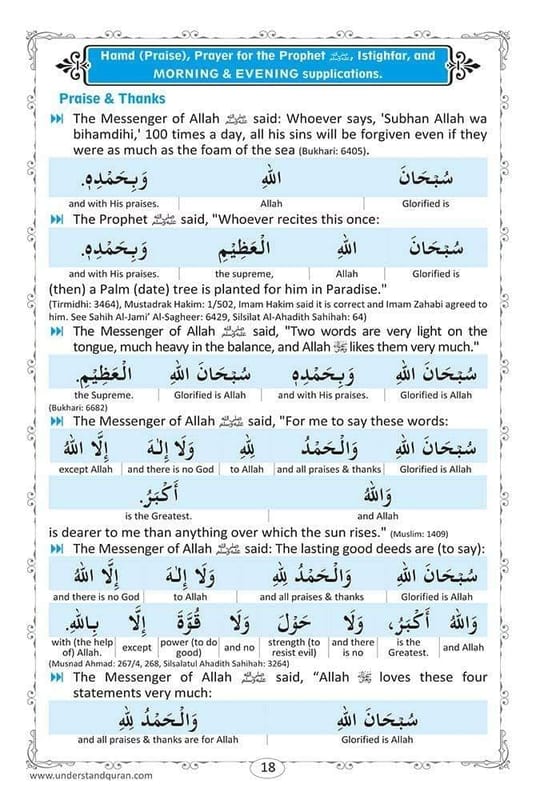 Hamd (Praise), Prayer for the Prophet ﷺ, Istighfar, and
MORNING & EVENING supplications.
Praise & Thanks
The Messenger of Allah ﷺ said: Whoever says, 'Subhan Allah wa
bihamdihi,' 100 times a day, all his sins will be forgiven even if they
were as much as the foam of the sea (Bukhari: 6405).
سُبْحَانَ اللهِ وَبِحَمْدِهٖ.
and with His praises. Allah Glorified is
The Prophet ﷺ said, "Whoever recites this once:
سُبْحَانَ اللهِ الْعَظِيْمِ وَبِحَمْدِهٖ.
and with His praises. the supreme, Allah Glorified is
(then) a Palm (date) tree is planted for him in Paradise."
(Tirmidhi: 3464), Mustadrak Hakim: 1/502, Imam Hakim said it is correct and Imam Zahabi agreed to
him. See Sahih Al-Jami’ Al-Sagheer: 6429, Silsilat Al-Ahadith Sahihah: 64)
The Messenger of Allah ﷺ said, "Two words are very light on the
tongue, much heavy in the balance, and Allah ﷻ likes them very much."
سُبْحَانَ اللهِ وَبِحَمْدِهٖ سُبْحَانَ اللهِ الْعَظِيْمِ.
the Supreme. Glorified is Allah and with His praises. Glorified is Allah
(Bukhari: 6682)
The Messenger of Allah ﷺ said, "For me to say these words:
سُبْحَانَ اللهِ وَالْحَمْدُ لِلّٰهِ وَلَا إِلٰهَ إِلَّا اللهُ
except Allah and there is no God to Allah and all praises & thanks Glorified is Allah
وَاللهُ أَكْبَرُ.
is the Greatest. and Allah
is dearer to me than anything over which the sun rises." (Muslim: 1409)
The Messenger of Allah ﷺ said: The lasting good deeds are (to say):
سُبْحَانَ اللهِ وَالْحَمْدُ لِلّٰهِ وَلَا إِلٰهَ إِلَّا اللهُ
and there is no God to Allah and all praises & thanks Glorified is Allah
وَاللهُ أَكْبَرُ، وَلَا حَوْلَ وَلَا قُوَّةَ إِلَّا بِاللهِ.
with (the help of) Allah. except power (to do good) and no strength (to resist evil) and there is no is the Greatest. and Allah
(Musnad Ahmad: 267/4, 268, Silsalatul Ahadith Sahihah: 3264)
The Messenger of Allah ﷺ said, “Allah ﷻ loves these four
statements very much:
سُبْحَانَ اللهِ وَالْحَمْدُ لِلّٰهِ
and all praises & thanks are for Allah Glorified is Allah
18
www.understandquran.com